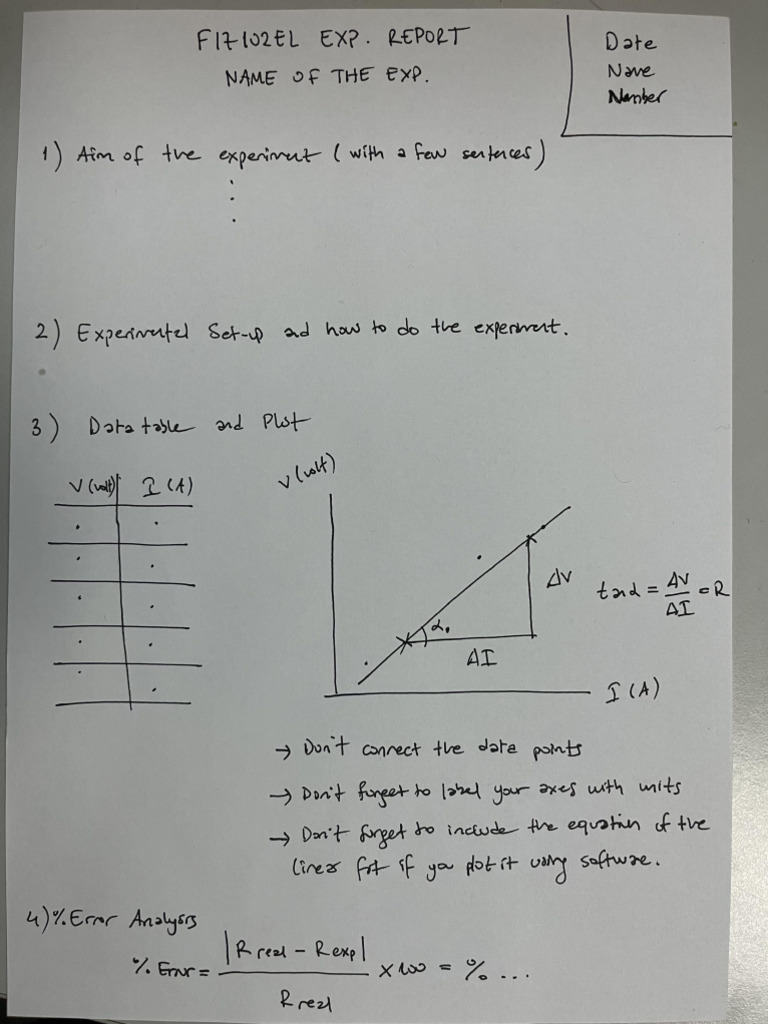 FIZ102EL EXP. REPORT
NAME OF THE EXP.
Date
Name
Number
1) Aim of the experiment (with a few sentences)
2) Experimental Set-up and how to do the experiment.
3) Data table and Plot
V (volt) I (A)
V (volt)
ΔV
tanα = ΔV/ΔI = R
α
ΔI
I (A)
→ Don't connect the data points
→ Don't forget to label your axes with units
→ Don't forget to include the equation of the
linear fit if you plot it using software.
4) % Error Analysis
% Error = |R real - R exp| / R real × 100 = % ...